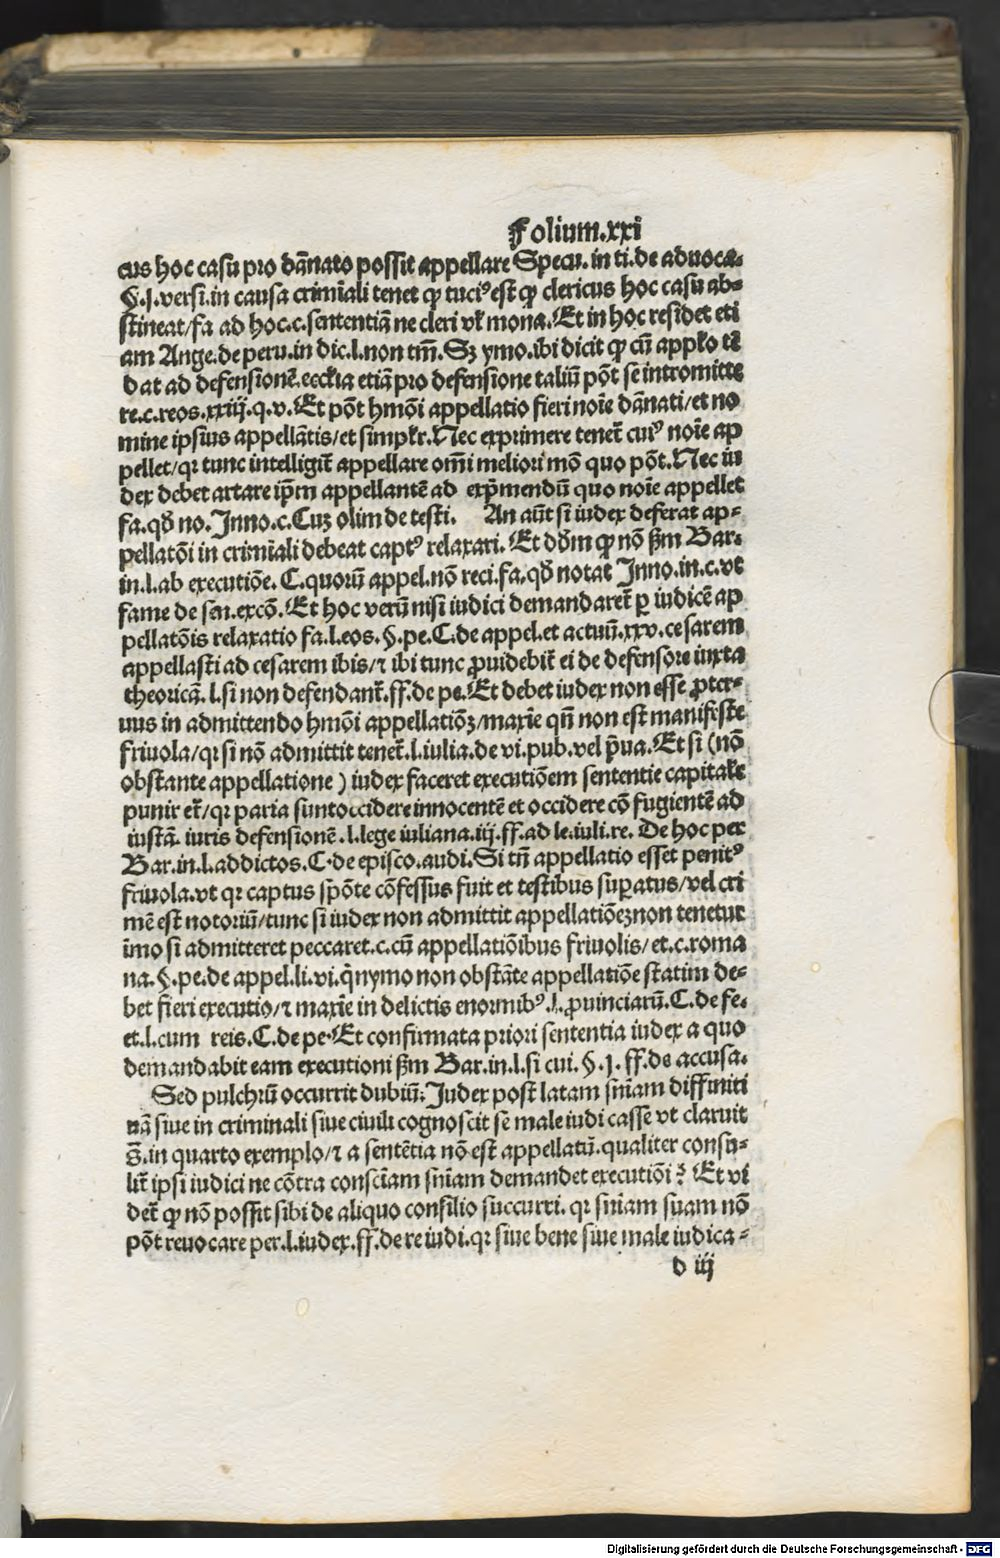 Folium.xxi
cus hoc casu pro dãnato possit appellare Specu. in ti. de aduoca-
§.j.versi.in causa crimĩali tenet ꝙ tuciꝰ est ꝙ clericus hoc casu ab-
stineat/fa ad hoc.c.sententiã ne cleri vł mona. Et in hoc residet eti
am Ange.de peru.in dic.l.non tm̃. Sꝫ ymo.ibi dicit ꝙ cũ appłо tẽ
dat ad defensionẽ.ecclia etiã pro defensione taliũ põt se intromitte
re.c.reos.xxiij.q.v. Et põt hmõi appellatio fieri noĩe dãnati/et no
mine ipsius appellãtis/et simplr. Nec exprimere tenet̃ cuiꝰ noĩe ap
pellet/qꝛ tunc intelligit̃ appellare omĩ meliori mõ quo põt. Nec iu
dex debet artare ip̃m appellantẽ ad exp̃mendũ quo noĩe appellet
fa.qđ no. Inno.c. Cuꝫ olim de testi. An aũt si iudex deferat ap-
pellatõi in crimĩali debeat captꝰ relaxari. Et dđm ꝙ nõ ẜm Bar.
in.l.ab executiõe. C.quorũ appel.nõ reci.fa.qđ notat Inno.in.c.vt
fame de sen.excõ. Et hoc verũ nisi iudici demandaret̃ ꝑ iudicẽ ap
pellatõis relaxatio fa.l.eos.§.pe.C.de appel.et actuũ.xxv.cesarem
appellasti ad cesarem ibis/⁊ ibi tunc ꝓuidebit̃ ei de defensore iuxta
theoricã. l.si non defendant̃.ff.de pe. Et debet iudex non esse ꝓter-
uus in admittendo hmõi appellatiõꝫ/maxĩe qñ non est manifeste
friuola/qꝛ si nõ admittit tenet̃.l.iulia.de vi.pub.vel p̃ua. Et si (nõ
obstante appellatione) iudex faceret executiõem sententie capitał
punir et̃/qꝛ paria sunt occidere innocentẽ et occidere cõ fugientẽ ad
iustã. iuris defensionẽ.l.lege iuliana.iij.ff.ad le.iuli.re. De hoc per
Bar.in.l.addictos.C.de episco.audi. Si tñ appellatio esset penitꝰ
friuola.vt qꝛ captus spõte cõfessus fuit et testibus suꝑatus/vel cri
mẽ est notoriũ/tunc si iudex non admittit appellatiõeꝫ non tenetur
imo si admitteret peccaret.c.cũ appellatiõibus friuolis/et.c.roma
na.§.pe.de appel.li.vi.q̃nymo non obstãte appellatiõe statim de-
bet fieri executio/⁊ maxĩe in delictis enormibꝰ.l.ꝓuinciarũ.C.de fe.
et.l.cum reis.C.de pe. Et confirmata priori sententia iudex a quo
demandabit eam executioni ẜm Bar.in.l.si cui.§.j.ff.de accusa.
Sed pulchrũ occurrit dubiũ: Iudex post latam sñiam diffiniti
uã siue in criminali siue ciuili cognoscit se male iudi casse vt claruit
s̃.in quarto exemplo/⁊ a sentẽtia nõ est appellatũ.qualiter consu-
lit̃ ipsi iudici ne cõtra consciam sñiam demandet executiõi? Et vi
det̃ ꝙ nõ possit sibi de aliquo consilio succurri. qꝛ sñiam suam nõ
põt reuocare per.l.iudex.ff.de re iudi.qꝛ siue bene siue male iudica-
d iij
Digitalisierung gefördert durch die Deutsche Forschungsgemeinschaft - DFG